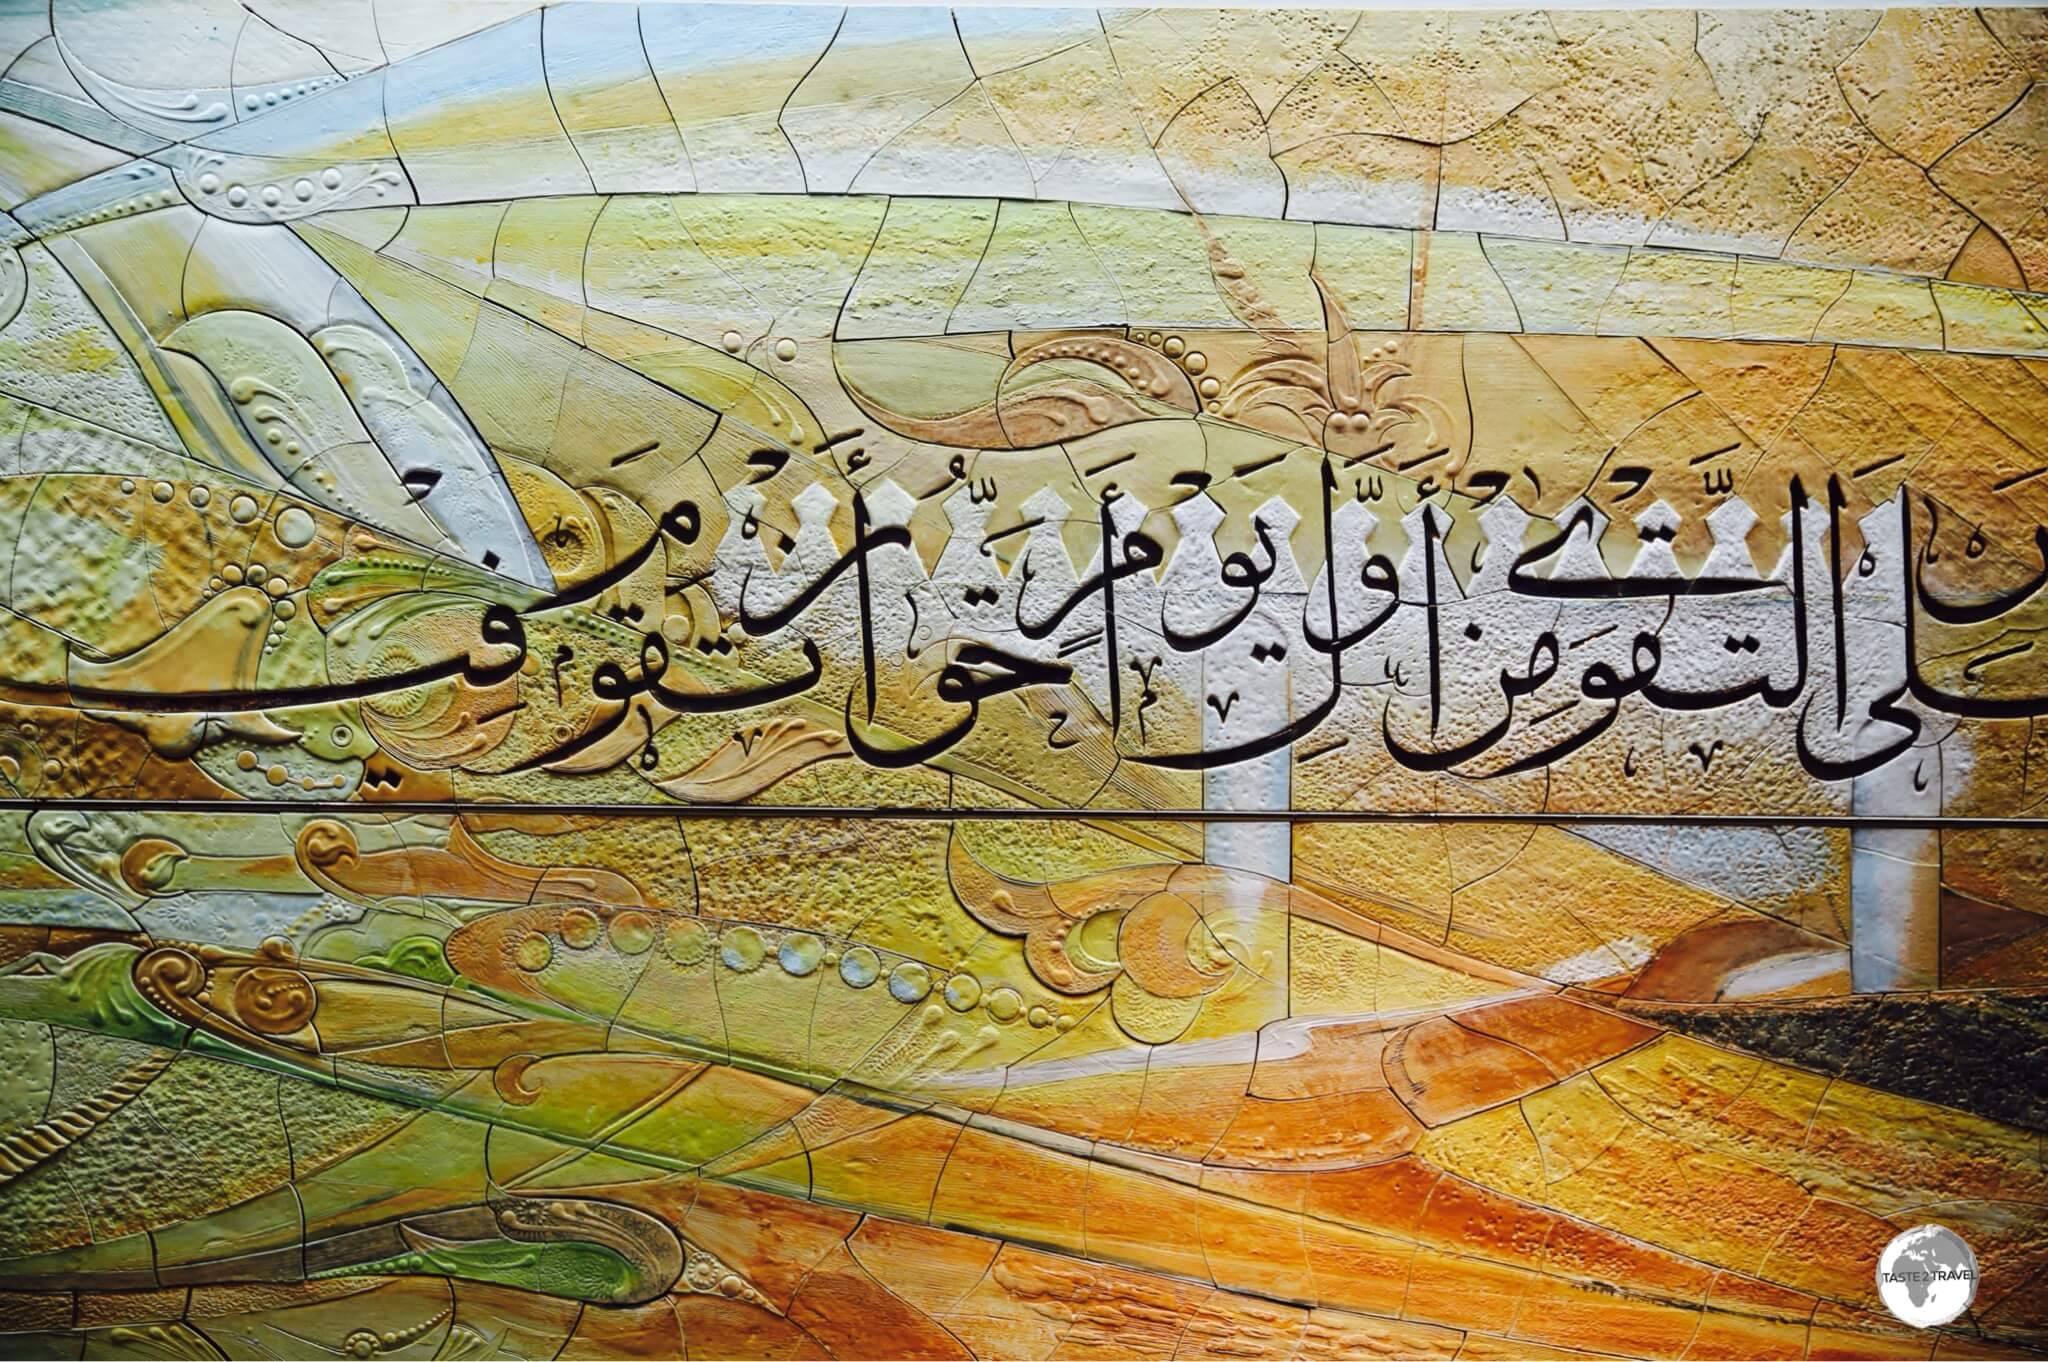 عَلَى التَّقْوَىٰ مِنْ أَوَّلِ يَوْمٍ أَحَقُّ أَنْ تَقُومَ فِي
TASTE2TRAVEL